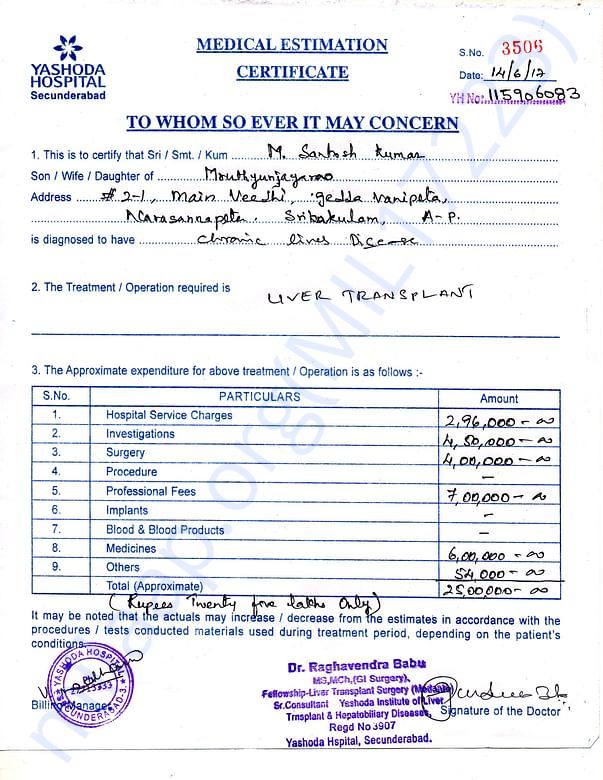 YASHODA
HOSPITAL
Secunderabad
MEDICAL ESTIMATION
CERTIFICATE
S.No. 3506
Date: 14/6/17
YH No: 115906083
TO WHOM SO EVER IT MAY CONCERN
1. This is to certify that Sri / Smt. / Kum M. Santosh Kumar
Son / Wife / Daughter of Mruthyunjayarao
Address # 2-1, Main Veedhi, Gedda Vanipeta,
Narasannapeta. Srikakulam, A-P.
is diagnosed to have chronic liver Disease
2. The Treatment / Operation required is LIVER TRANSPLANT
3. The Approximate expenditure for above treatment / Operation is as follows :-
S.No. PARTICULARS Amount
1. Hospital Service Charges 2,96,000-00
2. Investigations 4,50,000-00
3. Surgery 4,00,000-00
4. Procedure –
5. Professional Fees 7,00,000-00
6. Implants –
7. Blood & Blood Products –
8. Medicines 6,00,000-00
9. Others 54,000-00
Total (Approximate) 25,00,000-00
(Rupees Twenty five lakhs Only)
It may be noted that the actuals may increase / decrease from the estimates in accordance with the
procedures / tests conducted materials used during treatment period, depending on the patient's
conditions.
YASHODA HOSPITAL
SECUNDERABAD-3.
Billing Manager
Dr. Raghavendra Babu
MS,MCh,(GI Surgery),
Fellowship-Liver Transplant Surgery (Medanta)
Sr.Consultant Yashoda Institute of Liver
Trnsplant & Hepatobiliary Diseases,
Regd No 3907
Yashoda Hspital, Secunderabad.
Signature of the Doctor